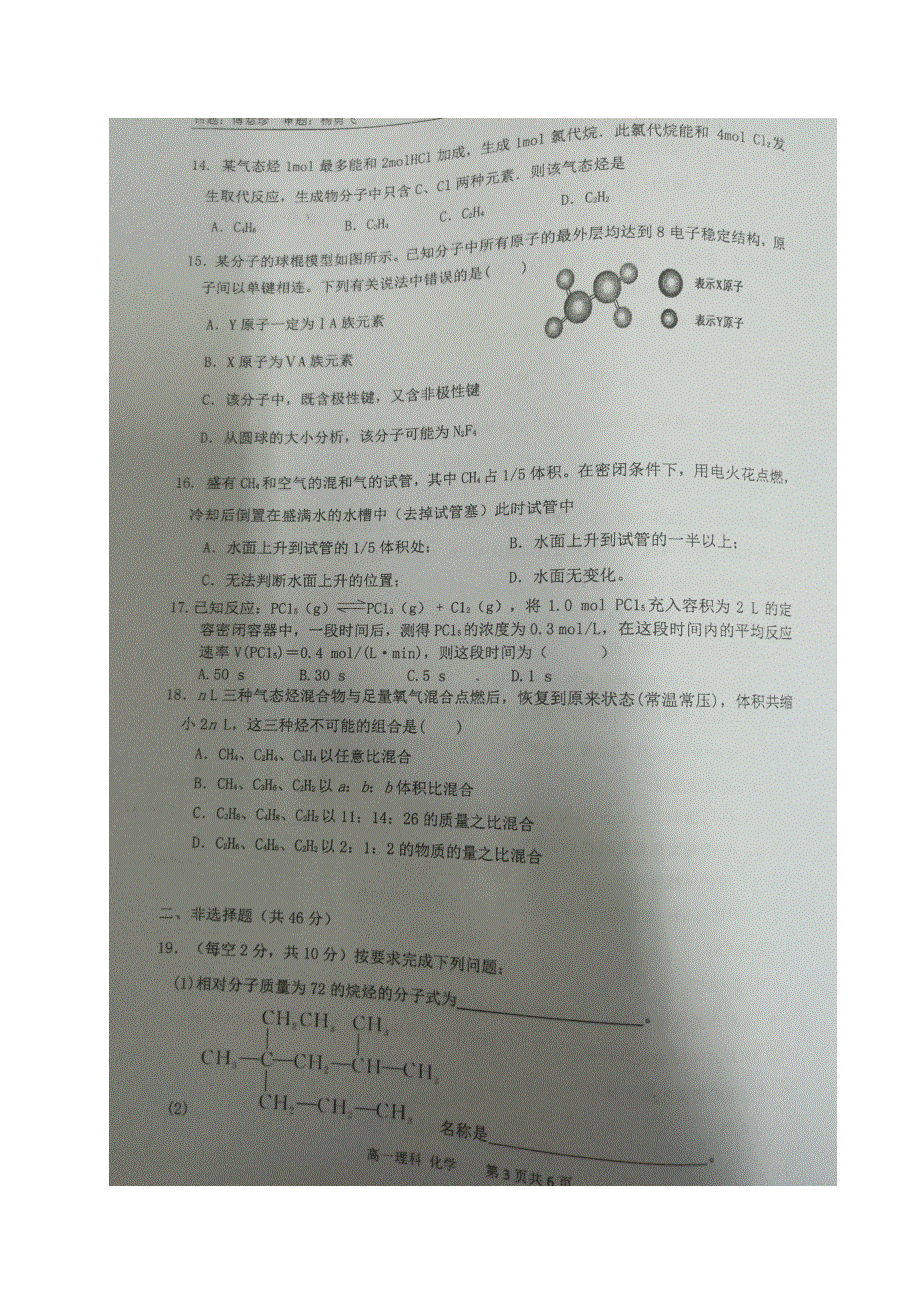 命题：傅慧珍 审题：杨荷飞
14. 某气态烃 1mol 最多能和 2molHCl 加成，生成 1mol 氯代烷．此氯代烷能和 4mol Cl₂发
生取代反应，生成物分子中只含 C、Cl 两种元素．则该气态烃是
A．C₄H₆ B．C₃H₄ C．C₂H₄ D．C₂H₂
15．某分子的球棍模型如图所示。已知分子中所有原子的最外层均达到 8 电子稳定结构，原
子间以单键相连。下列有关说法中错误的是( )
表示X原子
A．Y 原子一定为ⅠA 族元素
表示Y原子
B．X 原子为ⅤA 族元素
C．该分子中，既含极性键，又含非极性键
D．从圆球的大小分析，该分子可能为 N₂F₄
16. 盛有 CH₄和空气的混和气的试管，其中 CH₄占 1/5 体积。在密闭条件下，用电火花点燃，
冷却后倒置在盛满水的水槽中（去掉试管塞）此时试管中
A．水面上升到试管的 1/5 体积处； B．水面上升到试管的一半以上；
C．无法判断水面上升的位置； D．水面无变化。
17.已知反应：PCl₅（g）⇌PCl₃（g）+ Cl₂（g），将 1.0 mol PCl₅充入容积为 2 L 的定
容密闭容器中，一段时间后，测得 PCl₅的浓度为 0.3 mol/L，在这段时间内的平均反应
速率 V(PCl₅)＝0.4 mol/(L·min)，则这段时间为（ ）
A.50 s B.30 s C.5 s D.1 s
18．n L 三种气态烃混合物与足量氧气混合点燃后，恢复到原来状态(常温常压)，体积共缩
小 2n L，这三种烃不可能的组合是( )
A．CH₄、C₂H₄、C₃H₄以任意比混合
B．CH₄、C₃H₆、C₂H₂以 a：b：b 体积比混合
C．C₃H₈、C₄H₈、C₂H₂以 11：14：26 的质量之比混合
D．C₂H₆、C₄H₆、C₂H₂以 2：1：2 的物质的量之比混合
二、非选择题（共 46 分）
19．（每空 2 分，共 10 分）按要求完成下列问题：
(1)相对分子质量为 72 的烷烃的分子式为________。
CH₂CH₃ CH₃
CH₃—C—CH₂—CH—CH₃
CH₂—CH₂—CH₃
(2) 名称是________。
高一理科 化学 第 3 页共 6 页